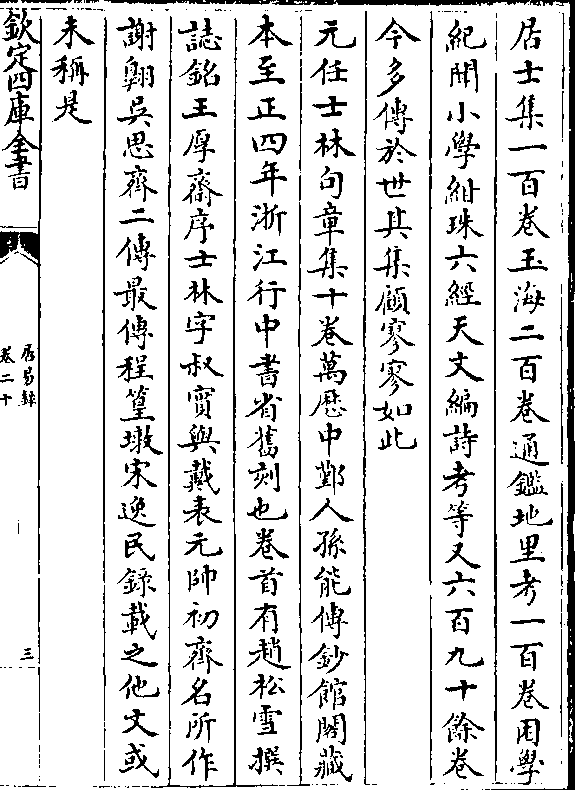 居士集一百卷玉海二百卷通鑑地里考一百卷困學
紀聞小學紺珠六經天文編詩考等又六百九十餘卷
今多傳於世其集顧寥寥如此
元任士林句章集十卷萬厯中鄞人孫能傳鈔館閣藏
本至正四年浙江行中書省舊刻也卷首有趙松雪撰
誌銘王厚齋序士林字叔實與戴表元帥初齊名所作
謝翺吳思齊二傳最傳程篁墩宋逸民錄載之他文或
未稱是
欽定四庫全書
居易錄
卷二十
三